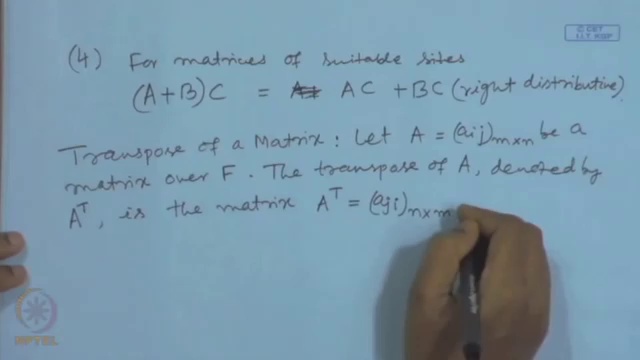 © CET
I.I.T. KGP
(4) For matrices of suitable sites
(A+B)C = AC + BC (right distributive).
Transpose of a Matrix : Let A = (aij)m×n be a
matrix over F. The transpose of A, denoted by
A^T, is the matrix A^T = (aji)n×m
NPTEL